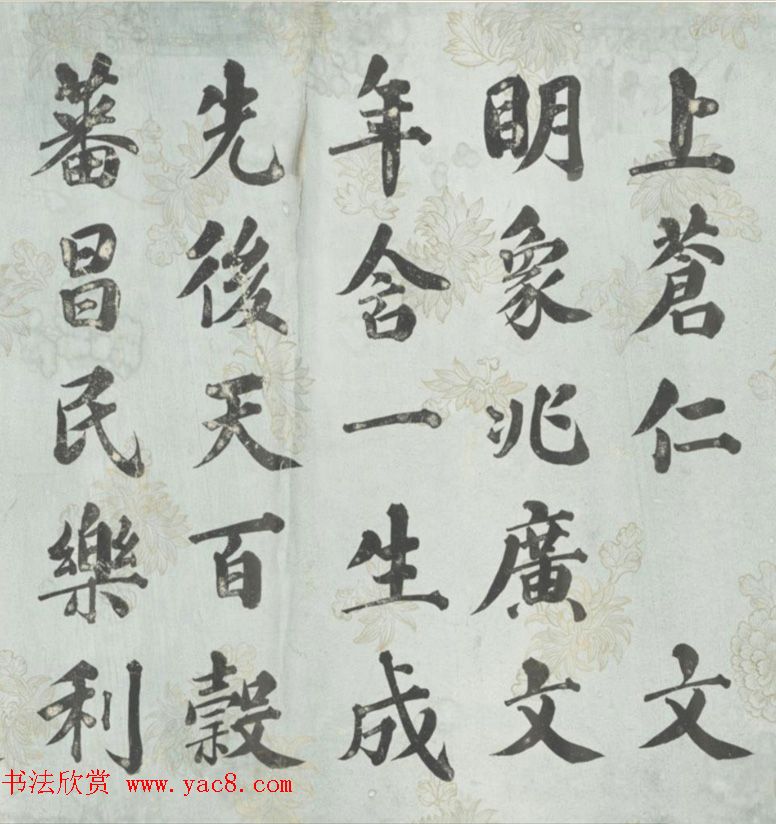 上蒼仁 文
明象兆廣文
年含一生成
先後天百穀
蕃昌民樂利
书法欣赏 www.yac8.com